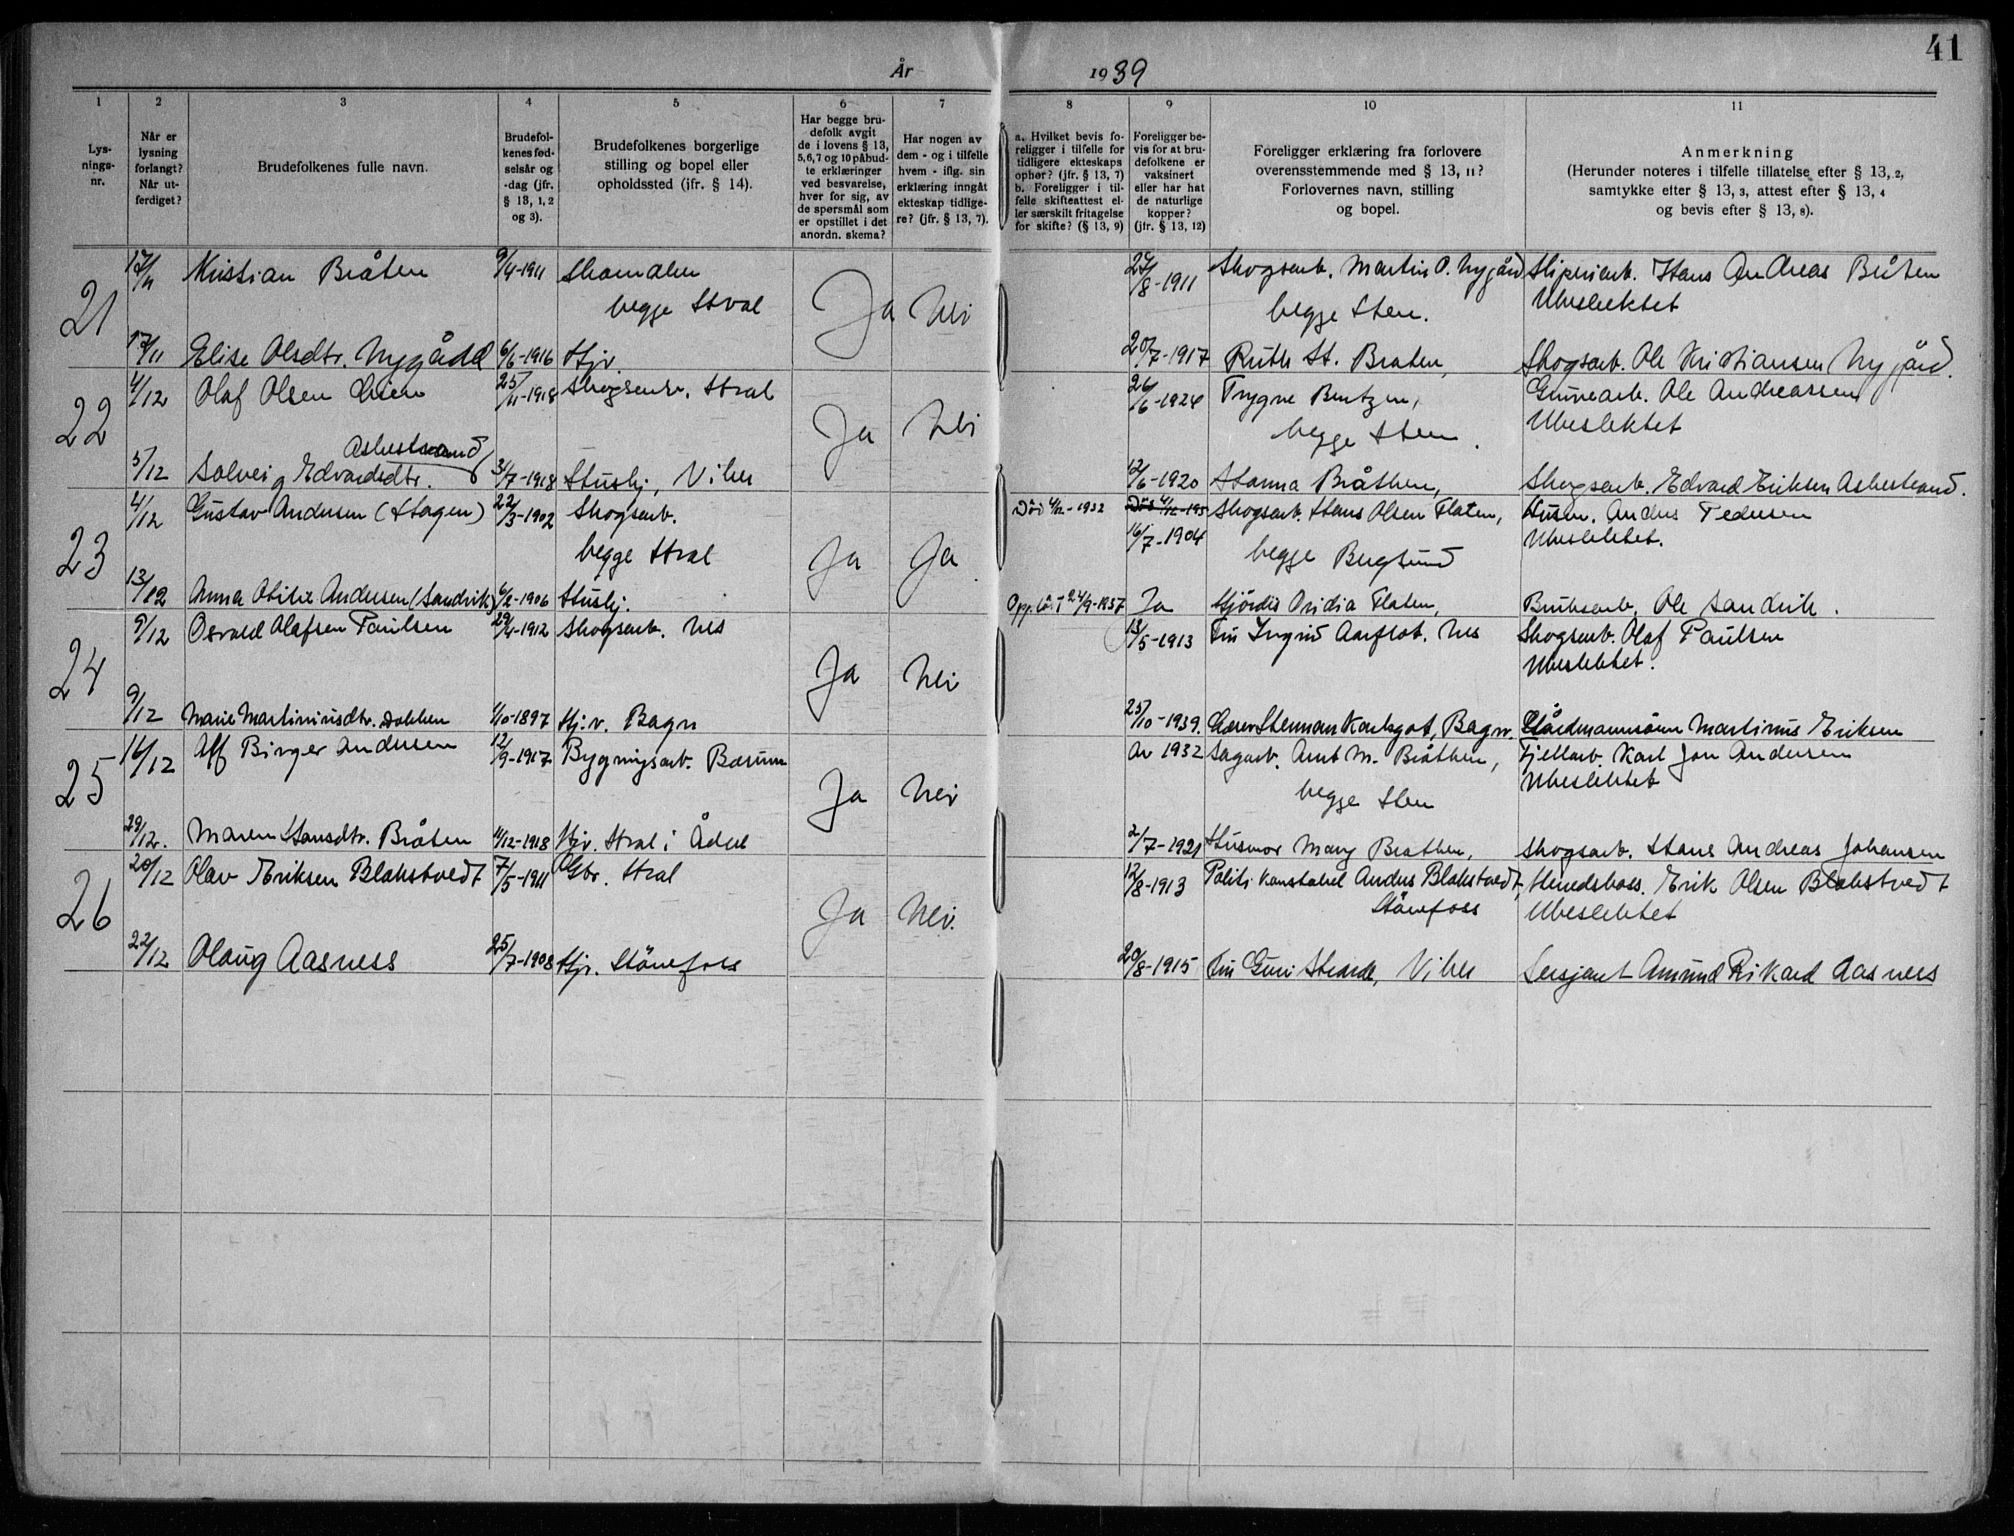 41
År 1939
1 2 3 4 5 6 7 8 9 10 11
Lys-
nings-
nr.
Når er
lysning
forlangt?
Når ut-
ferdiget?
Brudefolkenes fulle navn.
Brudefol-
kenes fød-
selsår og
-dag (jfr.
§ 13, 1, 2
og 3).
Brudefolkenes borgerlige
stilling og bopel eller
opholdssted (jfr. § 14).
Har begge bru-
defolk avgit
de i lovens § 13,
5,6,7 og 10 påbud-
te erklæringer
ved besvarelse,
hver for sig, av
de spørsmål som
er opstillet i det
anordn. skema?
Har nogen av
dem - og i tilfelle
hvem - iflg. sin
erklæring inngått
ekteskap tidlige-
re? (jfr. § 13, 7).
a. Hvilket bevis fo-
religger i tilfelle for
tidligere ekteskaps
ophør? (jfr. § 13, 7)
b. Foreligger i til-
felle skifteattest el-
ler særskilt fritagelse
for skifte? (§ 13, 9)
Foreligger be-
vis for at bru-
defolkene er
vaksinert
eller har hat
de naturlige
kopper?
(jfr. § 13, 12)
Foreligger erklæring fra forlovere
overensstemmende med § 13, 11?
Forlovernes navn, stilling
og bopel.
Anmerkning
(Herunder noteres i tilfelle tillatelse efter § 13, 2,
samtykke efter § 13, 3, attest efter § 13, 4
og bevis efter § 13, 8).
21
17/11 Kristian Bråten 9/4-1911 24/8-1911 Skogsarb. Martin O. Nygård Sliperiarb. Hans Andreas Bråten
begge Stral Ja Nei begge Sten. Ubeslektet
17/11 Elise Olsdtr. Nygård 6/6-1916 Hjv. 20/7-1917 Ruth H. Braten, Skogsarb. Ole Kristiansen Nygård.
22
4/12 Olaf Olsen 25/11-1918 Skogsarb. Stral Ja Nei 26/6-1924 Trygve Bentzen, Gruvearb. Ole Andreassen
begge Sten. Ubeslektet
Asbestrand
5/12 Solveig Edvardsdtr. 31/7-1918 Hushj, Viker 12/6-1920 Hanna Bråthen, Skogsarb. Edvard Eriksen Asbestrand.
23
4/12 Gustav Andersen (Hagen) 22/3-1902 Skogsarb. Død 4/12-1932 Skogsarb. Hans Olsen Flaten, Husm. Anders Pedersen
begge Stral Ja Ja 16/7-1904 begge Bergsund Ubeslektet.
13/12 Anna Otilie Andersen (Sandvik) 6/2-1906 Hushj. Oppløst 24/9-1937 Ja Hjördis Ovidia Flaten, Bruksarb. Ole Sandvik.
24
9/12 Osvald Olafsen Paulsen 29/4-1912 Skogsarb. Nes Ja Nei 13/5-1913 Fru Ingrid Aarflot. Nes Skogsarb. Olaf Paulsen
Ubeslektet.
9/12 Marie Martiniusdtr. Dokken 4/10-1897 Hj.v. Bagn 25/10-1939. Lærer Herman Karlsgot, Bagn. Gårdmannsønn Martinius Eriksen
25
16/12 Alf Birger Andersen 12/9-1917 Bygningsarb. Bærum Ja Nei Av 1932 Sagarb. Arnt M. Bråthen, Fjellarb. Karl Jon Andersen
begge Sten Ubeslektet
29/12. Maren Hansdtr. Bråten 11/12-1918 Hjv. Stral i Ådal 2/7-1921 Husmor Mary Brathen, Skogsarb. Hans Andreas Johansen
26
20/12 Olav Eriksen Blakstvedt 7/5-1911 Gbr. Stral Ja Nei. 12/8-1913 Politi konstabel Anders Blakstvedt, Herredskass. Erik Olsen Blakstvedt
Hönefoss Ubeslektet
22/12 Olaug Aasness 25/7-1908 Hjv. Hönefoss 20/8-1915 Fru Guri Strande, Viker Sersjant Amund Rikard Aasness